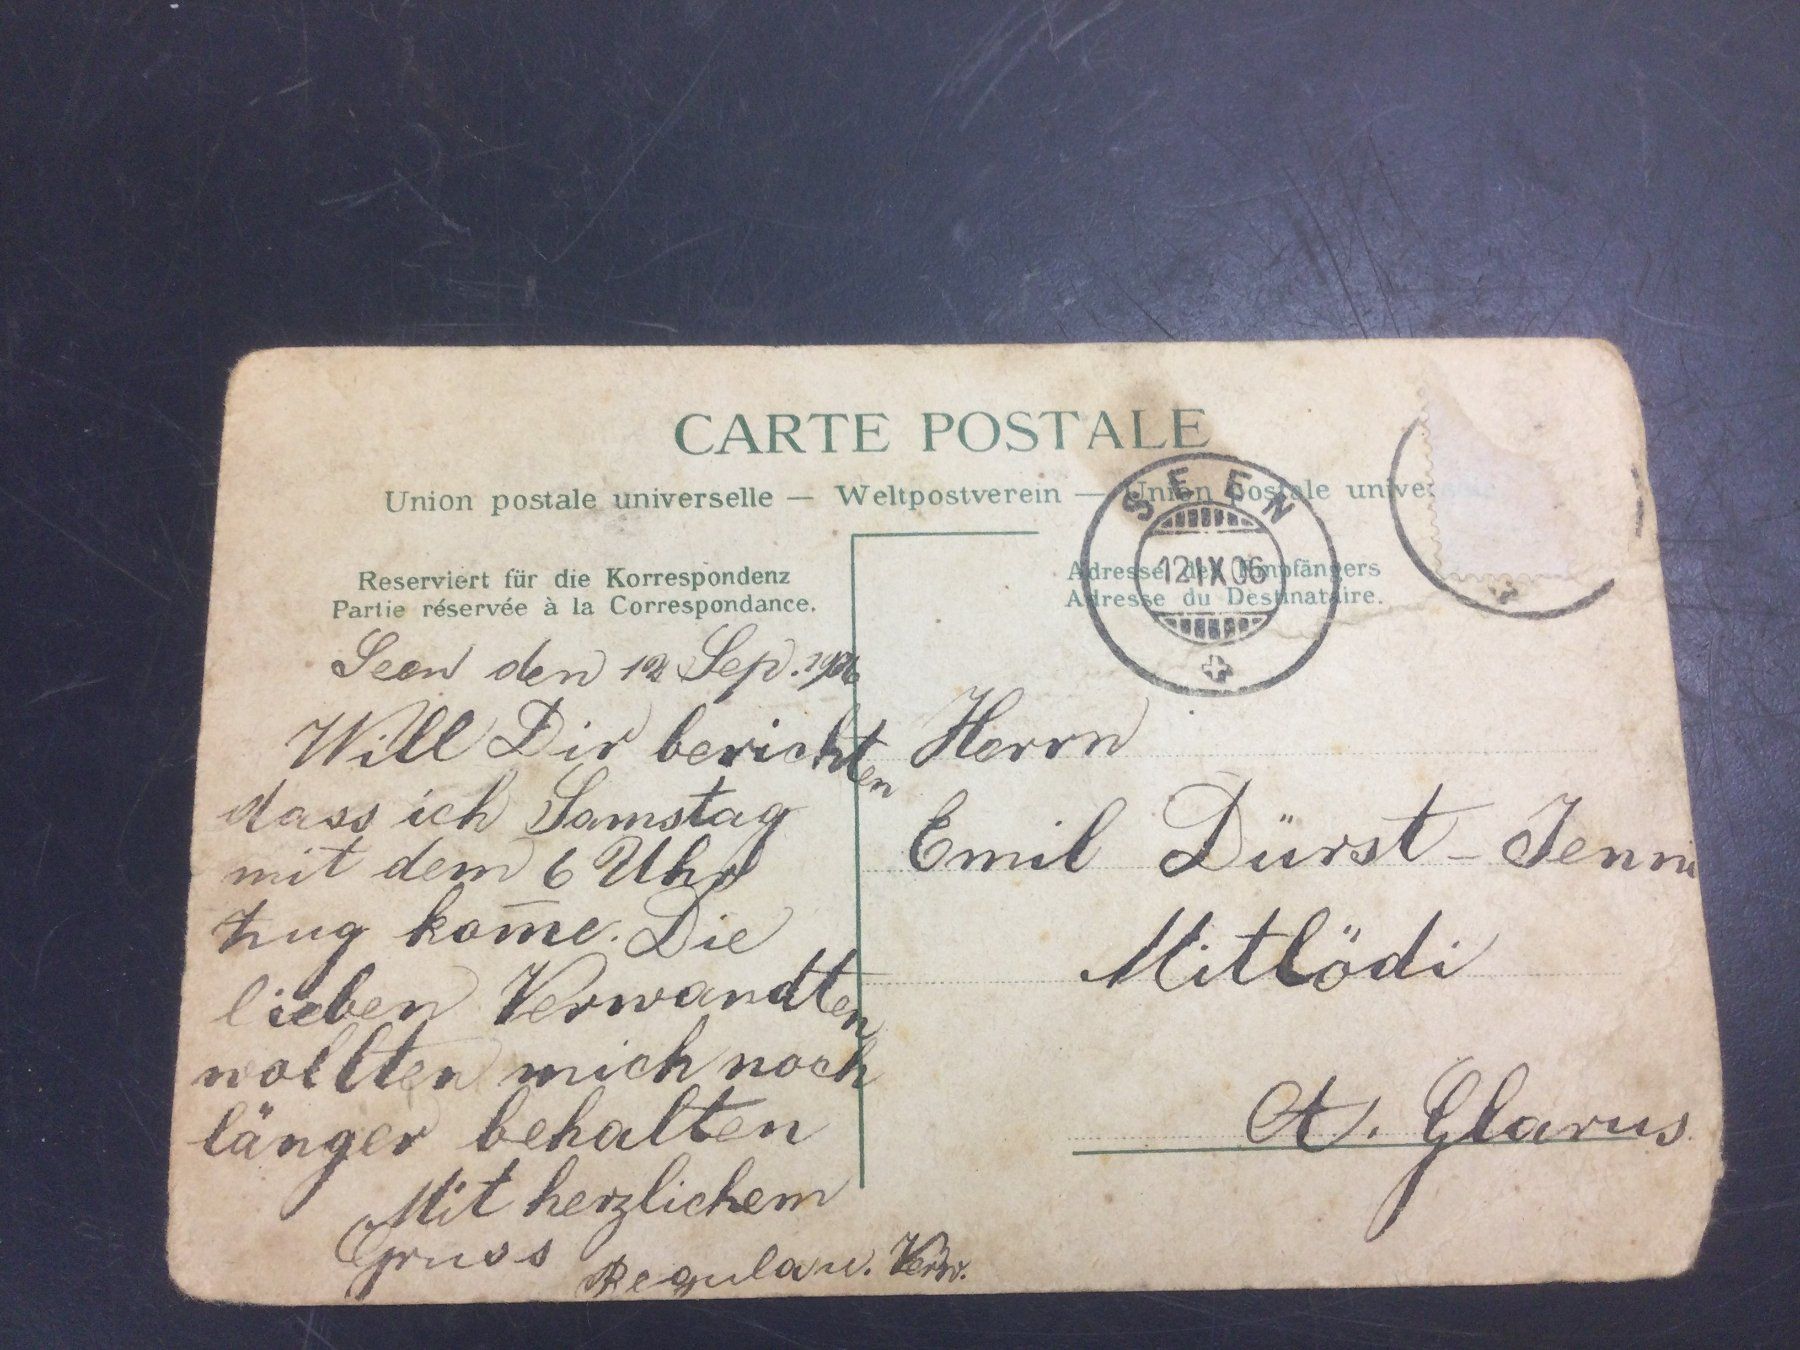 CARTE POSTALE
Union postale universelle — Weltpostverein — Union postale univer
SEEN
12 IX 06
Reserviert für die Korrespondenz
Partie réservée à la Correspondance.
Adresse des Empfängers
Adresse du Destinataire.
Seen den 12 Sep. 1906
Will Dir berichten
dass ich Samstag
mit dem 6 Uhr
Zug kom̅e. Die
lieben Verwandten
wollten mich noch
länger behalten
Mit herzlichem
Gruss Regula u. Verw.
Herrn
Emil Dürst-Jenni
Mitlödi
Ct. Glarus